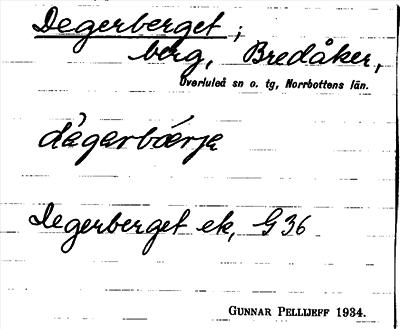 Degerberget ;
berg, Bredåker,
Överluleå sn o. tg, Norrbottens län.
dägarbærje
Degerberget ek, G 36
GUNNAR PELLIJEFF 1934.